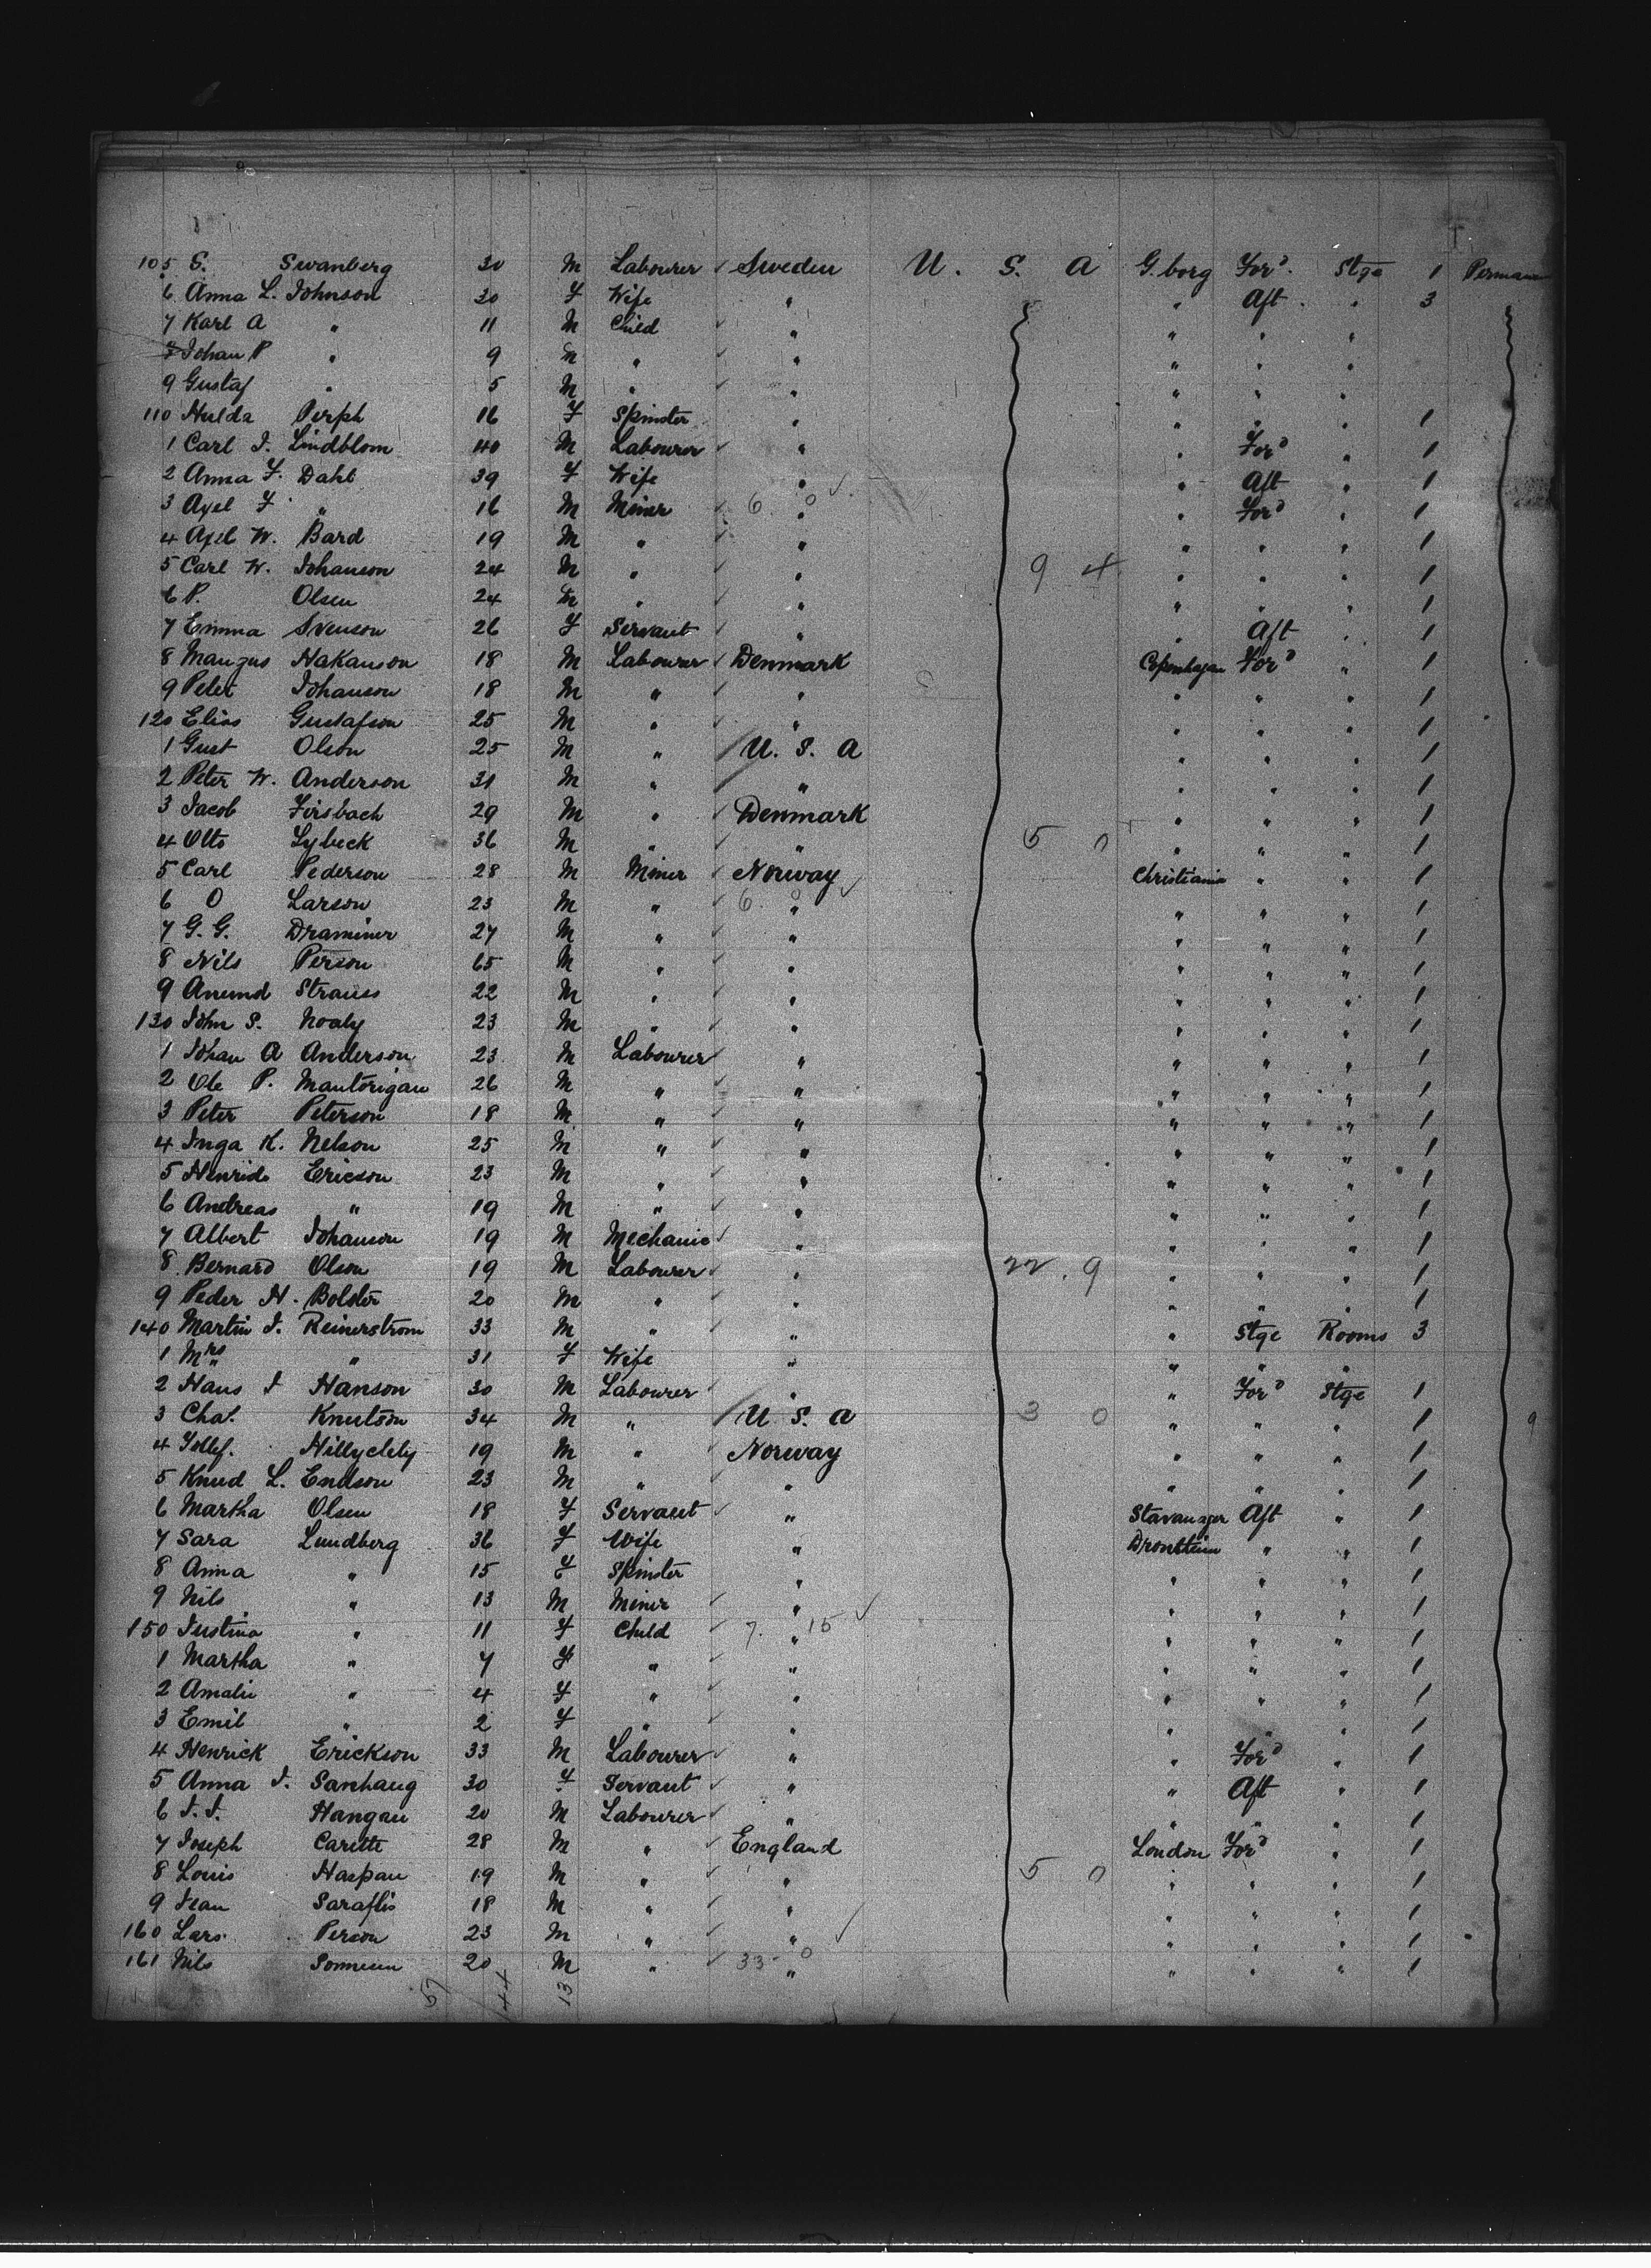 105 S. Swanberg 30 M Labourer Sweden U. S. A G.borg For'd. Stge 1 Perman
6 Anna L. Johnson 30 F Wife " " Aft " 3
7 Karl A " 11 M Child " " " "
Johan P " 9 M " " " " "
9 Gustaf " 5 M " " " " "
110 Hulda 16 F Spinster " " " " 1
1 Carl J. Lindblom 40 M Labourer " " For'd " 1
2 Anna F. Dahl 39 F Wife " " Aft " 1
3 Axel F " 16 M Miner 6 0 " " For'd " 1
4 Axel W. Bard 19 M " " " " " 1
5 Carl W. Johanson 24 M " " 9 4 " " " 1
6 P. Olsen 24 M " " " " " 1
7 Emma Svenson 26 F Servant " " Aft " 1
8 Maugus Hakanson 18 M Labourer Denmark Copenhagen For'd " 1
9 Peter Johanson 18 M " " " " " 1
120 Elias Gustafson 25 M " " " " " 1
1 Gust Olson 25 M " U. S. A " " " 1
2 Peter W. Anderson 31 M " " " " " 1
3 Jacob Firsbach 29 M " Denmark " " " 1
4 Otto Lybeck 36 M " " 5 0 " " " 1
5 Carl Pederson 28 M Miner Norway Christiania " " 1
6 O Larson 23 M " 6 0 " " " " 1
7 G. G. Draminer 27 M " " " " " 1
8 Nils Person 65 M " " " " " 1
9 Anund Strauss 22 M " " " " " 1
130 John S. Noaly 23 M " " " " " 1
1 Johan A Anderson 23 M Labourer " " " " 1
2 Ole P. Mantorigan 26 M " " " " " 1
3 Peter Peterson 18 M " " " " " 1
4 Inga K. Nelson 25 M " " " " " 1
5 Ericson 23 M " " " " " 1
6 Andreas " 19 M " " " " " 1
7 Albert Johanson 19 M Mechanic " " " " 1
8 Bernard Olson 19 M Labourer " 22. 9 " " " 1
9 Peder H. Bolster 20 M " " " " " 1
140 Martin J. Reinerstrom 33 M " " " Stge Rooms 3
1 Mrs " 31 F Wife " " " "
2 Hans J Hanson 30 M Labourer " " For'd Stge 1
3 Chas. Knutson 34 M " U S. A 3 0 " " " 1 9
4 19 M " Norway " " " 1
5 Knud L. Endson 23 M " " " " " 1
6 Martha Olsen 18 F Servant " Stavanger Aft " 1
7 Sara Lundberg 36 F Wife " Drontheim " " 1
8 Anna " 15 F Spinster " " " " 1
9 Nils " 13 M Miner " " " " 1
150 Justina " 11 F Child 7. 15 " " " " 1
1 Martha " 7 F " " " " " 1
2 Amalie " 4 F " " " " " 1
3 Emil " 2 F " " " " " 1
4 Henrick Erickson 33 M Labourer " " For'd " 1
5 Anna J. Sanhaug 30 F Servant " " Aft " 1
6 J. J. Hangan 20 M Labourer " " " " 1
7 Joseph Carette 28 M " England London For'd " 1
8 Louis Haspan 19 M " " 5 0 " " " 1
9 Jean Saraflis 18 M " " " " " 1
160 Lars Person 23 M " " " " " 1
161 Nils 20 M " 33- 0 " " " " 1
57 44 13